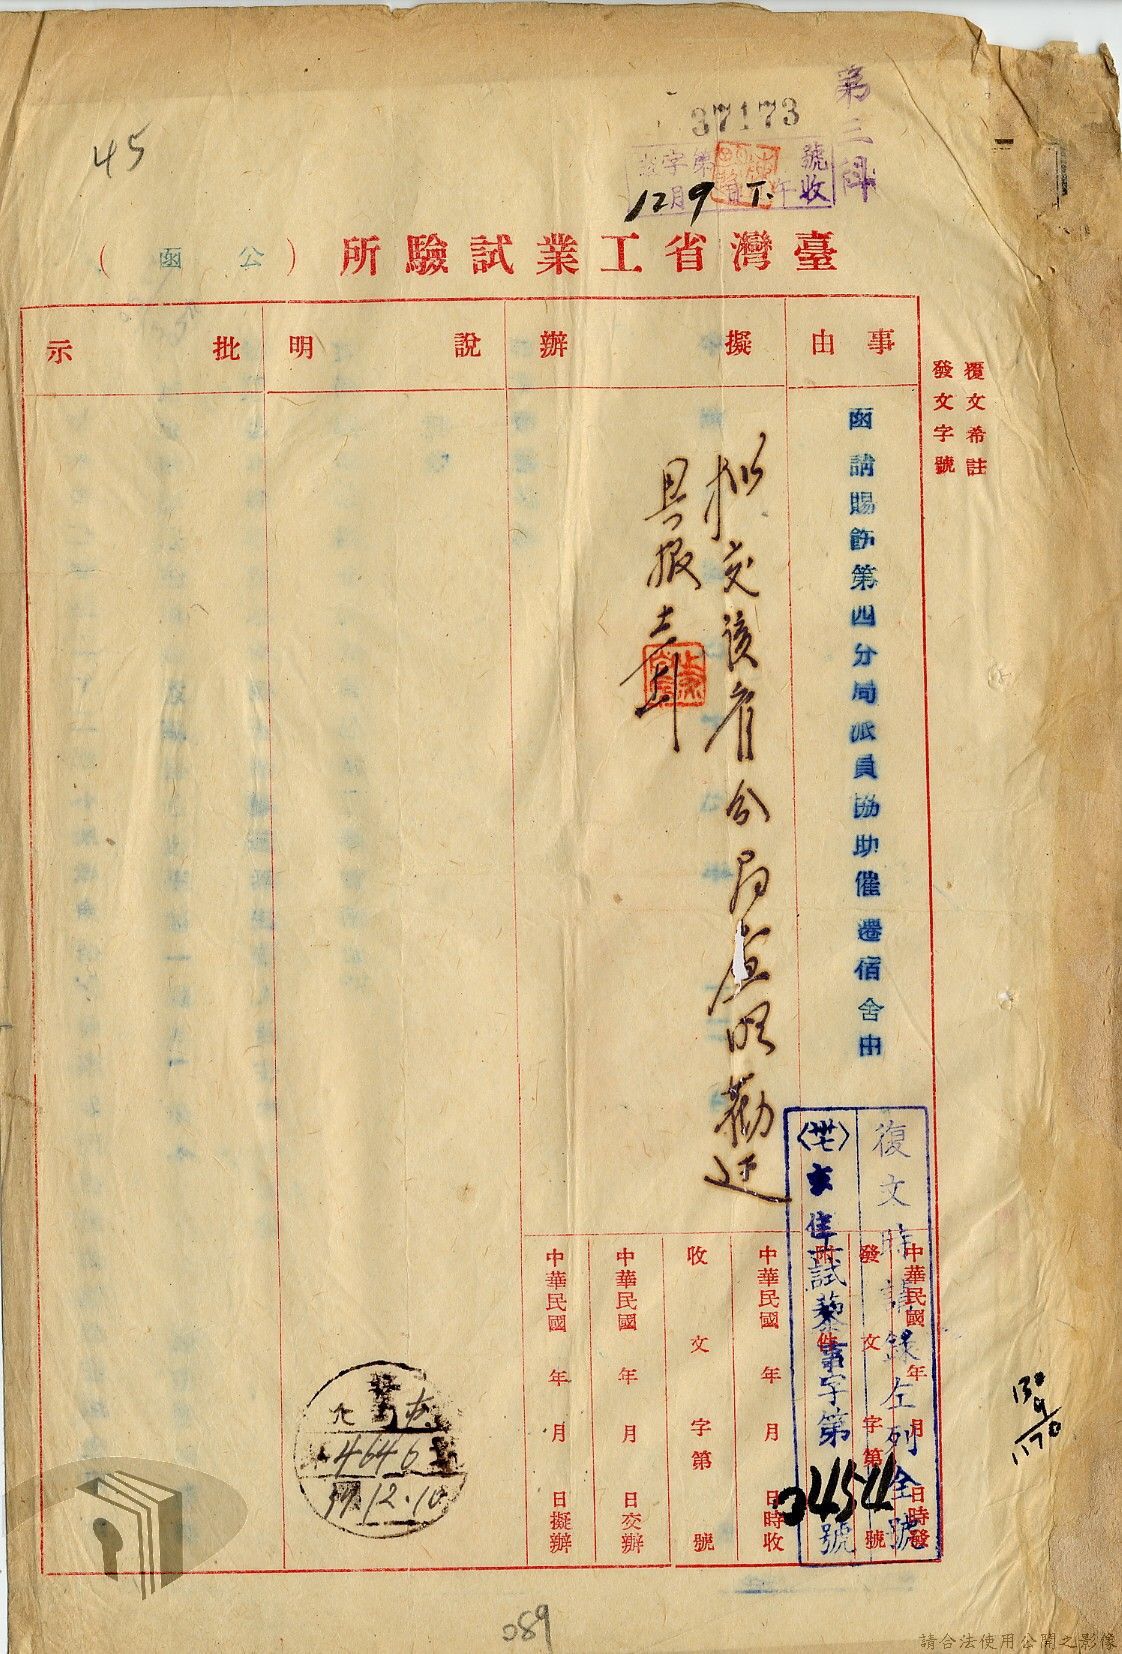 45
第三科
37173
字第 號
12月9日 T. 午收
臺灣省工業試驗所（公函）
事由
擬辦
說明
批示
覆文希註
發文字號
函請賜飭第四分局派員協助催還宿舍由
擬交該省分局查明勸遷
具報
復文時請錄左列全號
〈卅七〉亥佳試藜事字第04544號
中華民國 年 月 日時發
發文 字第 號
附件
中華民國 年 月 日時收
收文 字第 號
中華民國 年 月 日交辦
中華民國 年 月 日擬辦
4646
37.12.10
130
9
1170
089
請合法使用公開之影像